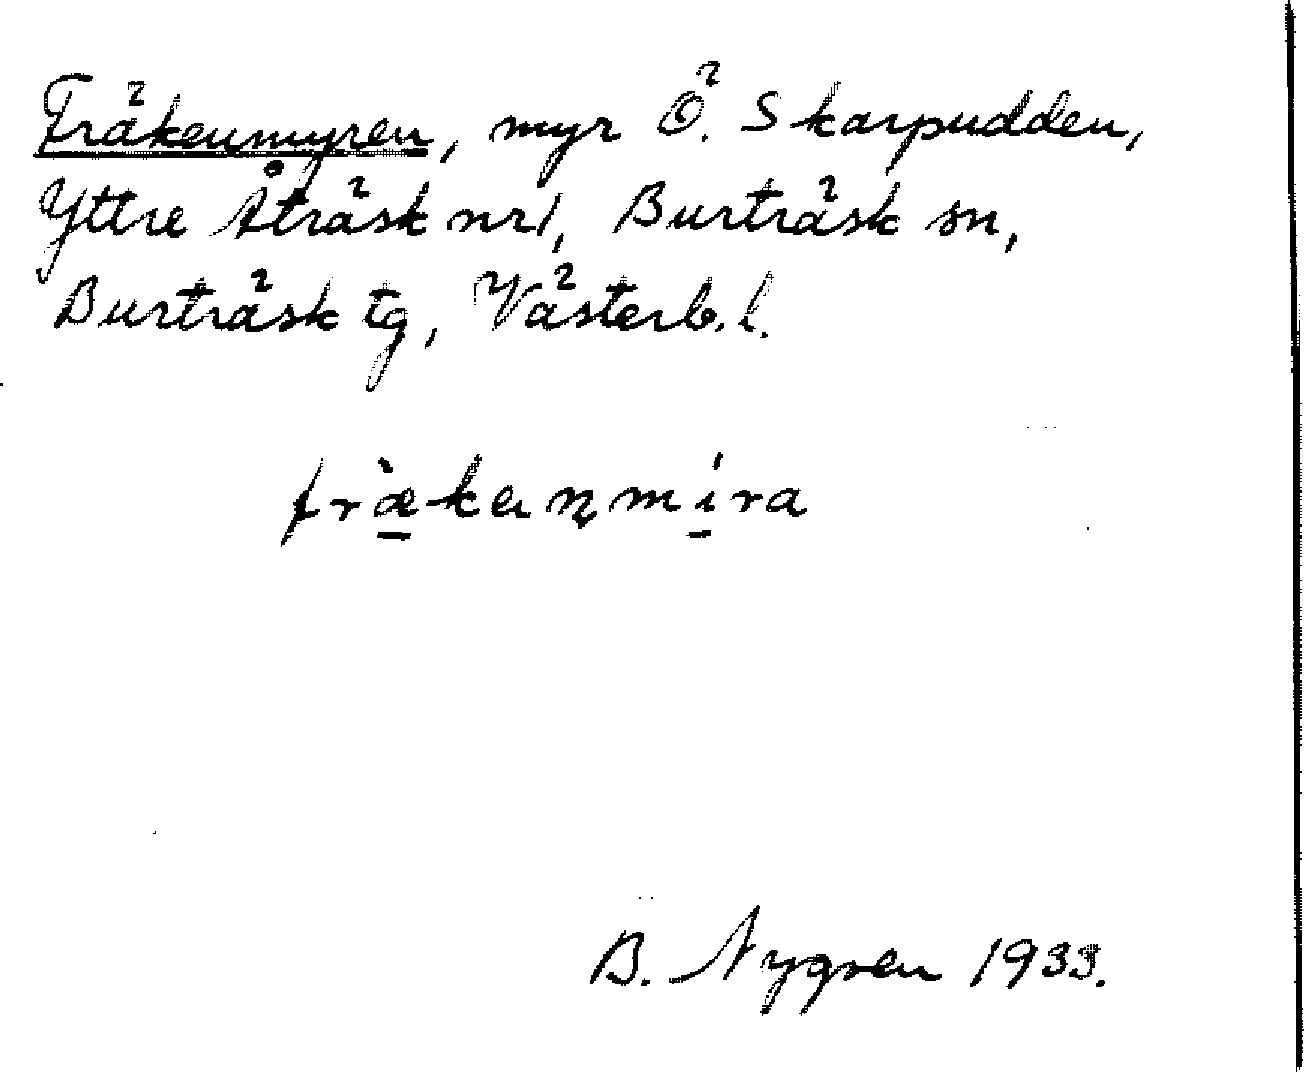 Fräkenmyren, myr Ö. Skarpudden,
Yttre Åträsk nr 1, Burträsk sn,
Burträsk tg, Västerb. l.
fræ̀kenmíra
B. Nygren 1933.